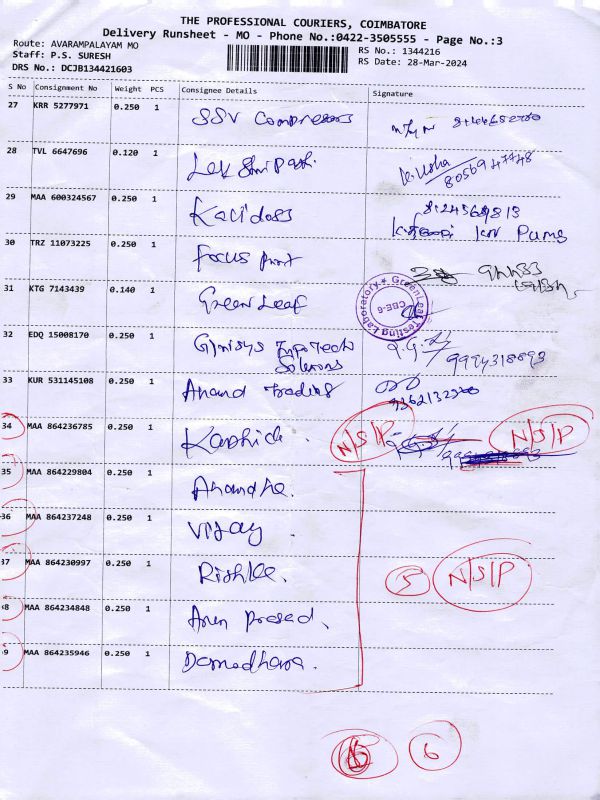 THE PROFESSIONAL COURIERS, COIMBATORE
Delivery Runsheet - MO - Phone No.:0422-3505555 - Page No.:3
Route: AVARAMPALAYAM MO
Staff: P.S. SURESH
DRS No.: DCJB134421603
RS No.: 1344216
RS Date: 28-Mar-2024
S No Consignment No Weight PCS Consignee Details Signature
27 KRR 5277971 0.250 1 SSV Compressors
28 TVL 6647696 0.120 1 80569 47748
29 MAA 600324567 0.250 1 Kalidass
30 TRZ 11073225 0.250 1 Focus Print
31 KTG 7143439 0.140 1 Green Leaf
GreenLeaf Testing Laboratory CBE-6
32 EDQ 15008170 0.250 1 InfoTech
9994318893
33 KUR 531145108 0.250 1 Anand Trading
34 MAA 864236785 0.250 1 N/S/P N/S/P
35 MAA 864229804 0.250 1
36 MAA 864237248 0.250 1 Vijay
37 MAA 864230997 0.250 1 5 N/S/P
38 MAA 864234848 0.250 1 Arun Prasad
39 MAA 864235946 0.250 1
6